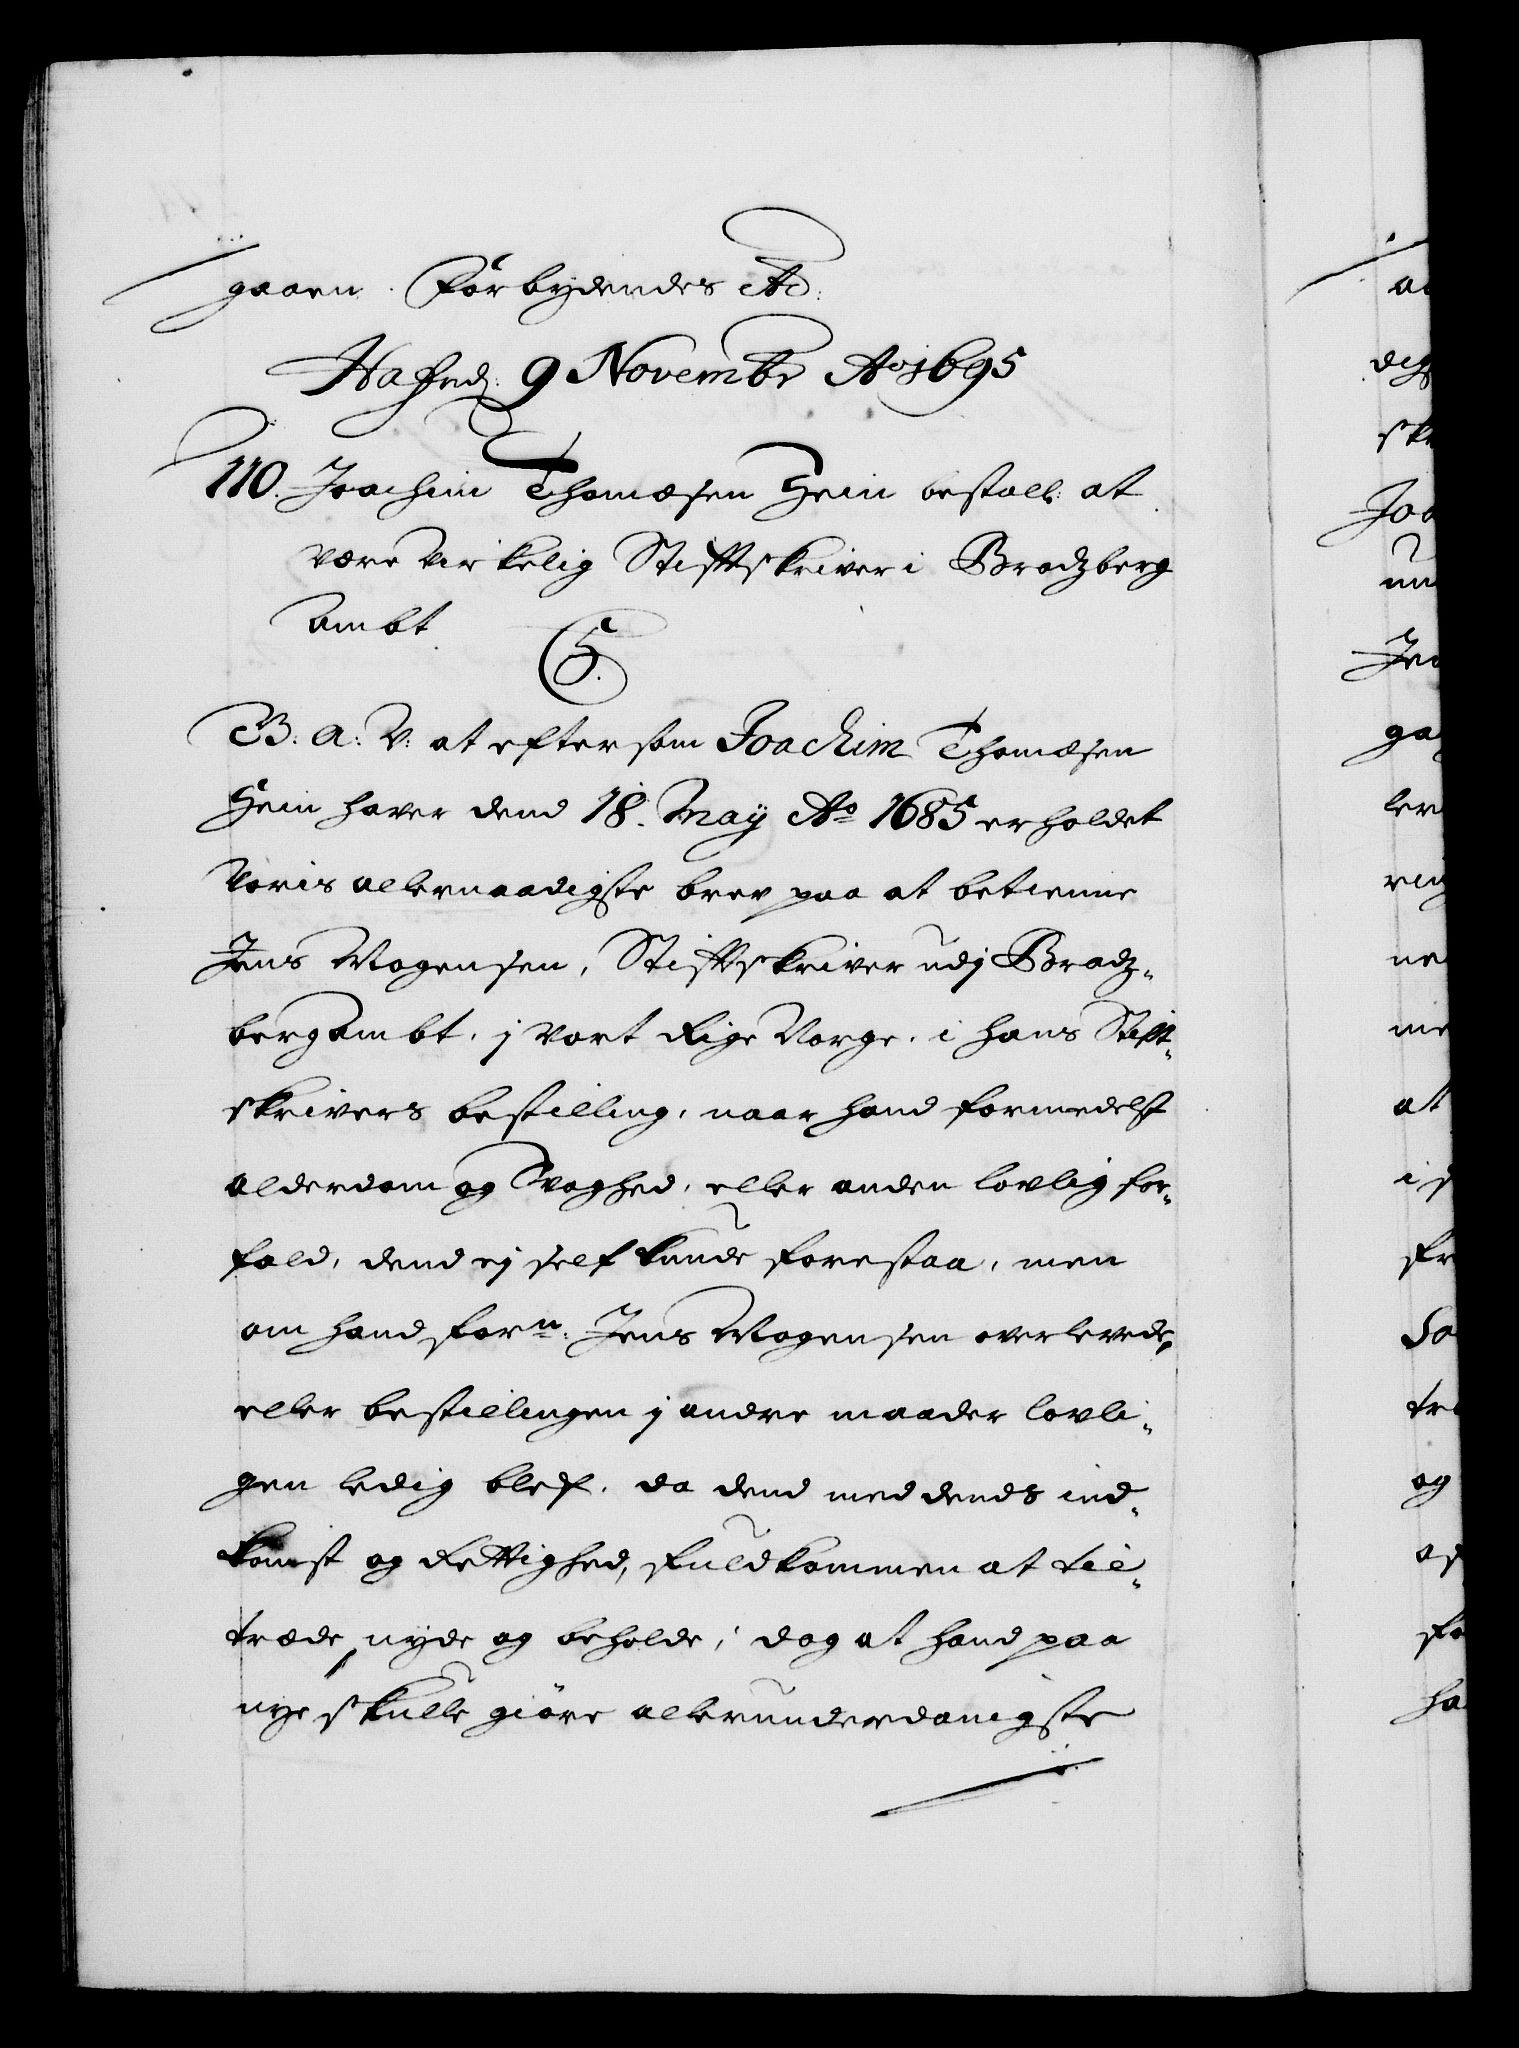 gaaen. Forbydendes etc:
Hafnd: 9 Novembr Ao 1695
110. Joachim Thomæsen Hein bestall: at
være virkelig Stifftskriver i Bradzberg
Ambt.
C5.
V: A: V: at eftersom Joachim Thomæsen
Hein haver dend 18. Maÿ Ao 1685 erholdet
Voris allernaadigste brev paa at betienne
Jens Mogensen, Stifftskriver udj Bradz-
berg Ambt, j vort Rige Norge, i hans Stifft-
skrivers bestilling, naar hand formedelst
alderdom og Svaghed, eller anden lovlig for-
fald, dend ej self kunde forestaa, men
om hand forn: Jens Mogensen overlevede,
eller bestillingen j andre maader lovli-
gen ledig blef, da dend med dends ind-
komst og Rettighed, fuldkommen at til-
træde, nyde og beholde; dog at hand paa
nye skulle giøre allerunderdanigste